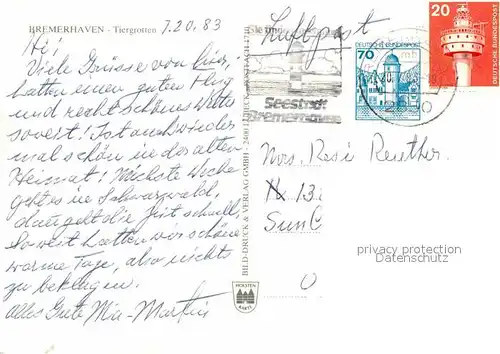 BREMERHAVEN - Tiergrotten
7.20.83
Hi!
Viele Grüsse von hier,
hatten einen guten Flug
und recht schönes Wetter
soweit! Ist auch wieder
mal schön in der alten
Heimat! Nächste Woche
geht es in Schwarzwald,
dann geht die Zeit schnell,
So weit hatten wir schöne
warme Tage, also nichts
zu beklagen.
Alles Gute Mia-Martin
BILD-DRUCK & VERLAG GMBH · 2400 LÜBECK · POSTFACH
HOLSTEN
KARTE
Luftpost
Seestadt
Bremerhaven
DEUTSCHE BUNDESPOST
70
20
DEUTSCHE BUNDESPOST
Mrs. Resi Reuther
13
Sun C
O
privacy protection
Datenschutz